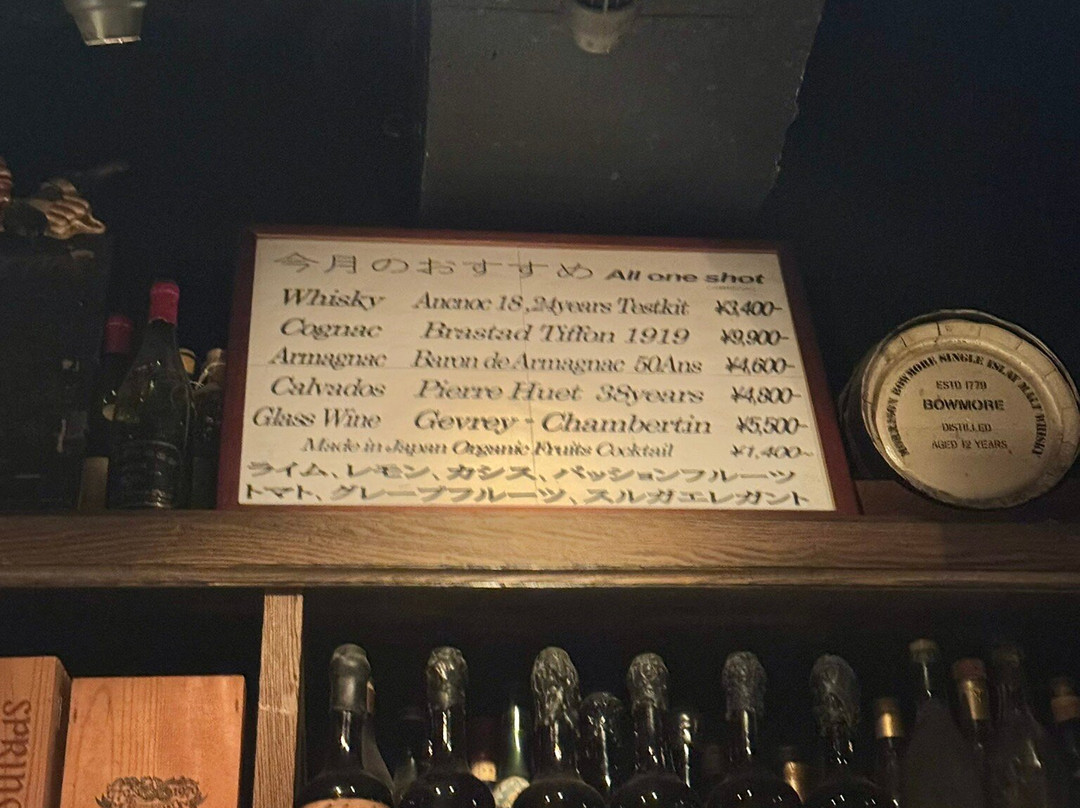 今月のおすすめ All one shot
Whisky Ancnoc 18,24years Testkit ¥3,400-
Cognac Brastad Tiffon 1919 ¥9,900-
Armagnac Baron de Armagnac 50Ans ¥4,600-
Calvados Pierre Huet 38years ¥4,800-
Glass Wine Gevrey-Chambertin ¥5,500-
Made in Japan Organic Fruits Cocktail ¥1,400~
ライム、レモン、カシス、パッションフルーツ
トマト、グレープフルーツ、スルガエレガント
MORRISON BOWMORE SINGLE ISLAY MALT WHISKY
ESTD 1779
BOWMORE
DISTILLED
AGED 12 YEARS